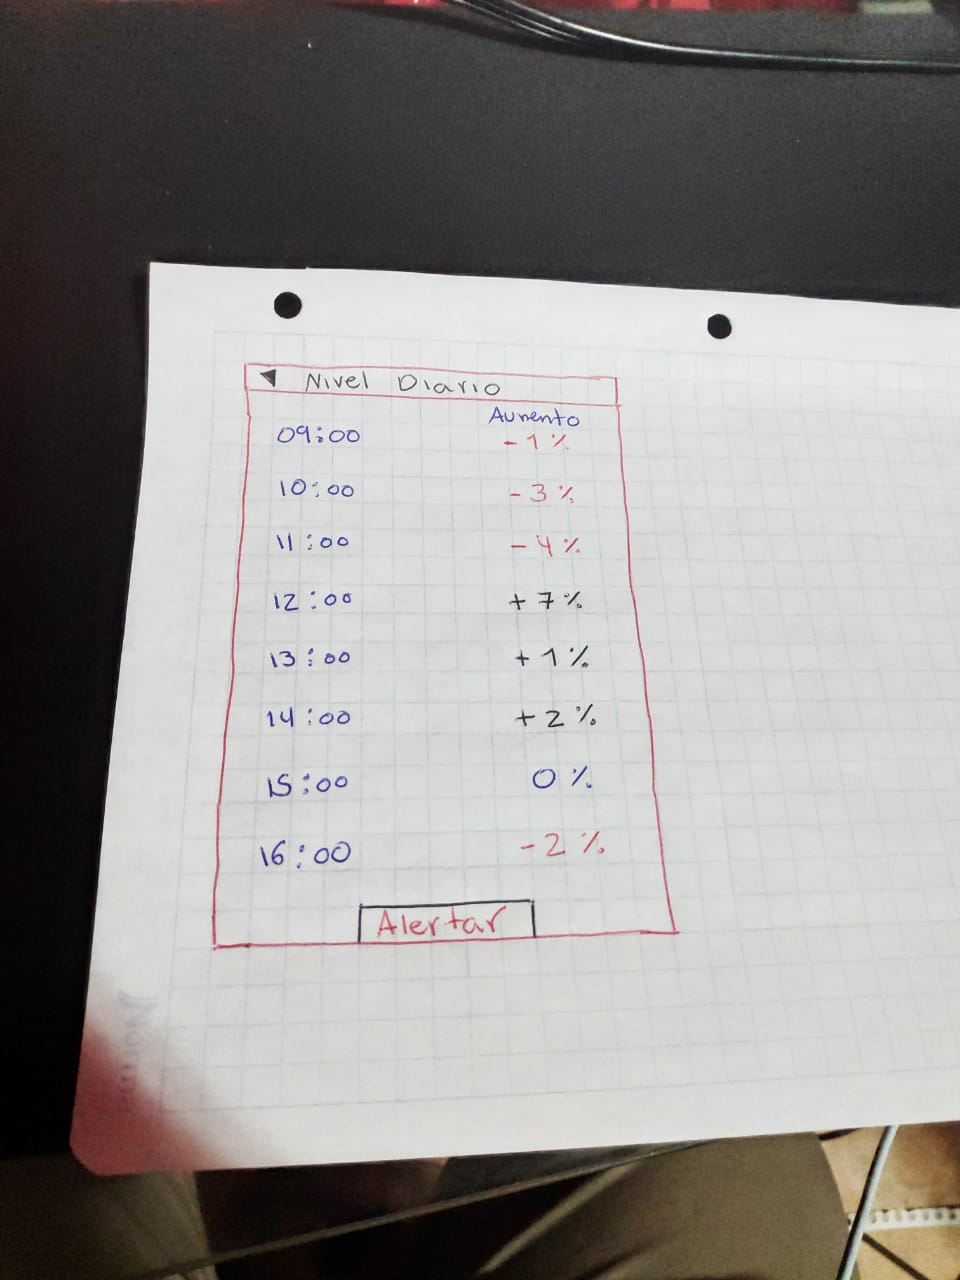 Nivel Diario
Aumento
09:00 -1%
10:00 -3%
11:00 -4%
12:00 +7%
13:00 +1%
14:00 +2%
15:00 0%
16:00 -2%
Alertar